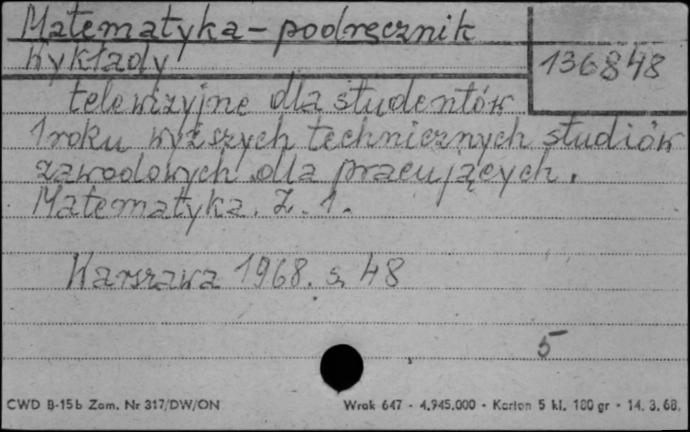 Matematyka - podręcznik
Wykłady
136848
telewizyjne dla studentów
1 roku wyższych technicznych studiów
zawodowych dla pracujących.
Matematyka. Z. 1.
Warszawa 1968. s. 48
5
CWD B-15b Zam. Nr 317/DW/ON
Wrak 647 - 4.945.000 - Karton 5 kl. 180 gr - 14. 3. 68.